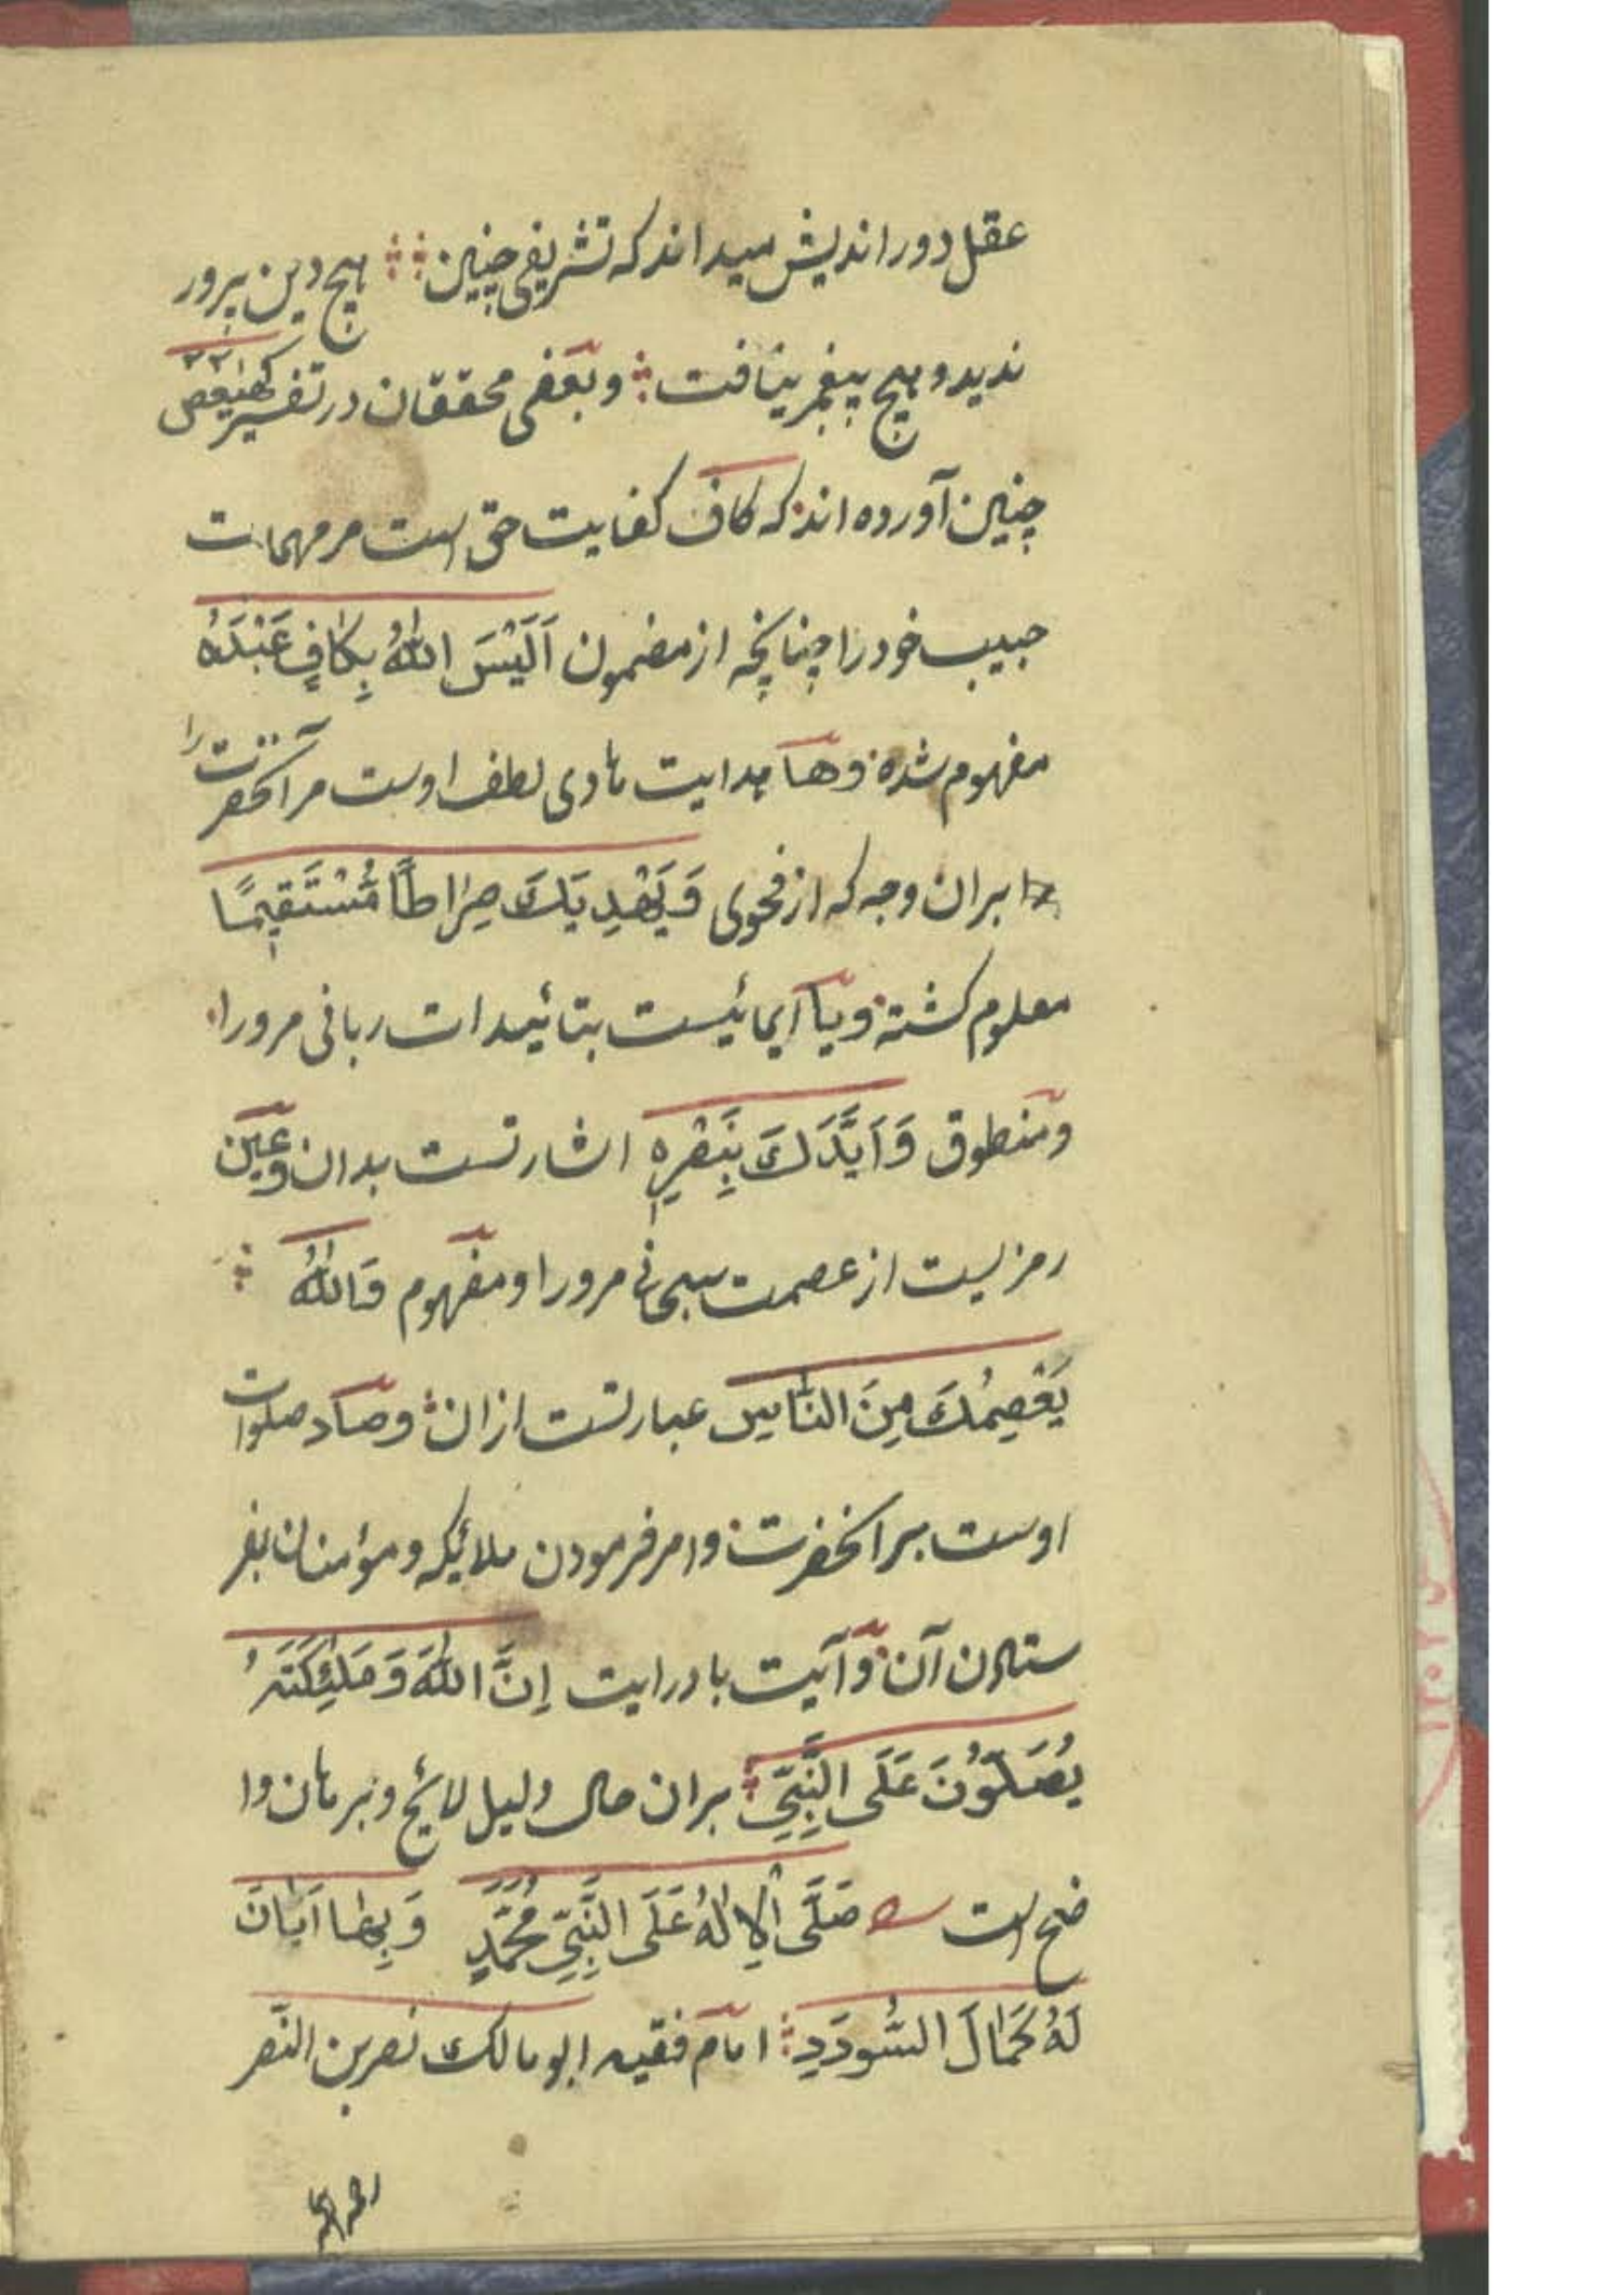 عقل دور اندیش میداند که تشریفی چنین هیچ دین پرور
ندید و هیچ پیغمبر نیافت و بعضی محققان در تفسیر کهیعص
چنین آورده اند که کاف کفایت حق است مر مهمات
حبیب خود را چنانچه از مضمون اَلَیْسَ اللهُ بِکافٍ عَبْدَهُ
مفهوم شده وها هدایت هادی لطف اوست مر آنحضرت را
بران وجه که از فحوی وَیَهْدِیَكَ صِراطًا مُسْتَقیمًا
معلوم کشته ویا ایمائیست بتائیدات ربانی مرورا
ومنطوق وَاَیَّدَكَ بِنَصْرِهِ اشارتست بدان وعین
رمزیست از عصمت سبحانی مرورا ومفهوم وَاللهُ
یَعْصِمُكَ مِنَ النّاسِ عبارتست ازان وصاد صلوات
اوست بر انحضرت وامر فرمودن ملائیکه ومؤمنان بفر
ستادن آن وآیت با درایت اِنَّ اللهَ وَمَلٰئِکَتَهُ
یُصَلّوُنَ عَلَی النَّبِیِّ بران حال دلیل لائح وبرهان وا
ضح است صَلَّی الْاِلٰهُ عَلَی النَّبِیِّ مُحَمَّدٍ وَبِهٰا اَبٰانَ
لَهُ کَمٰالَ السُّودَدِ امام فقیه ابو مالک نصر بن النصر